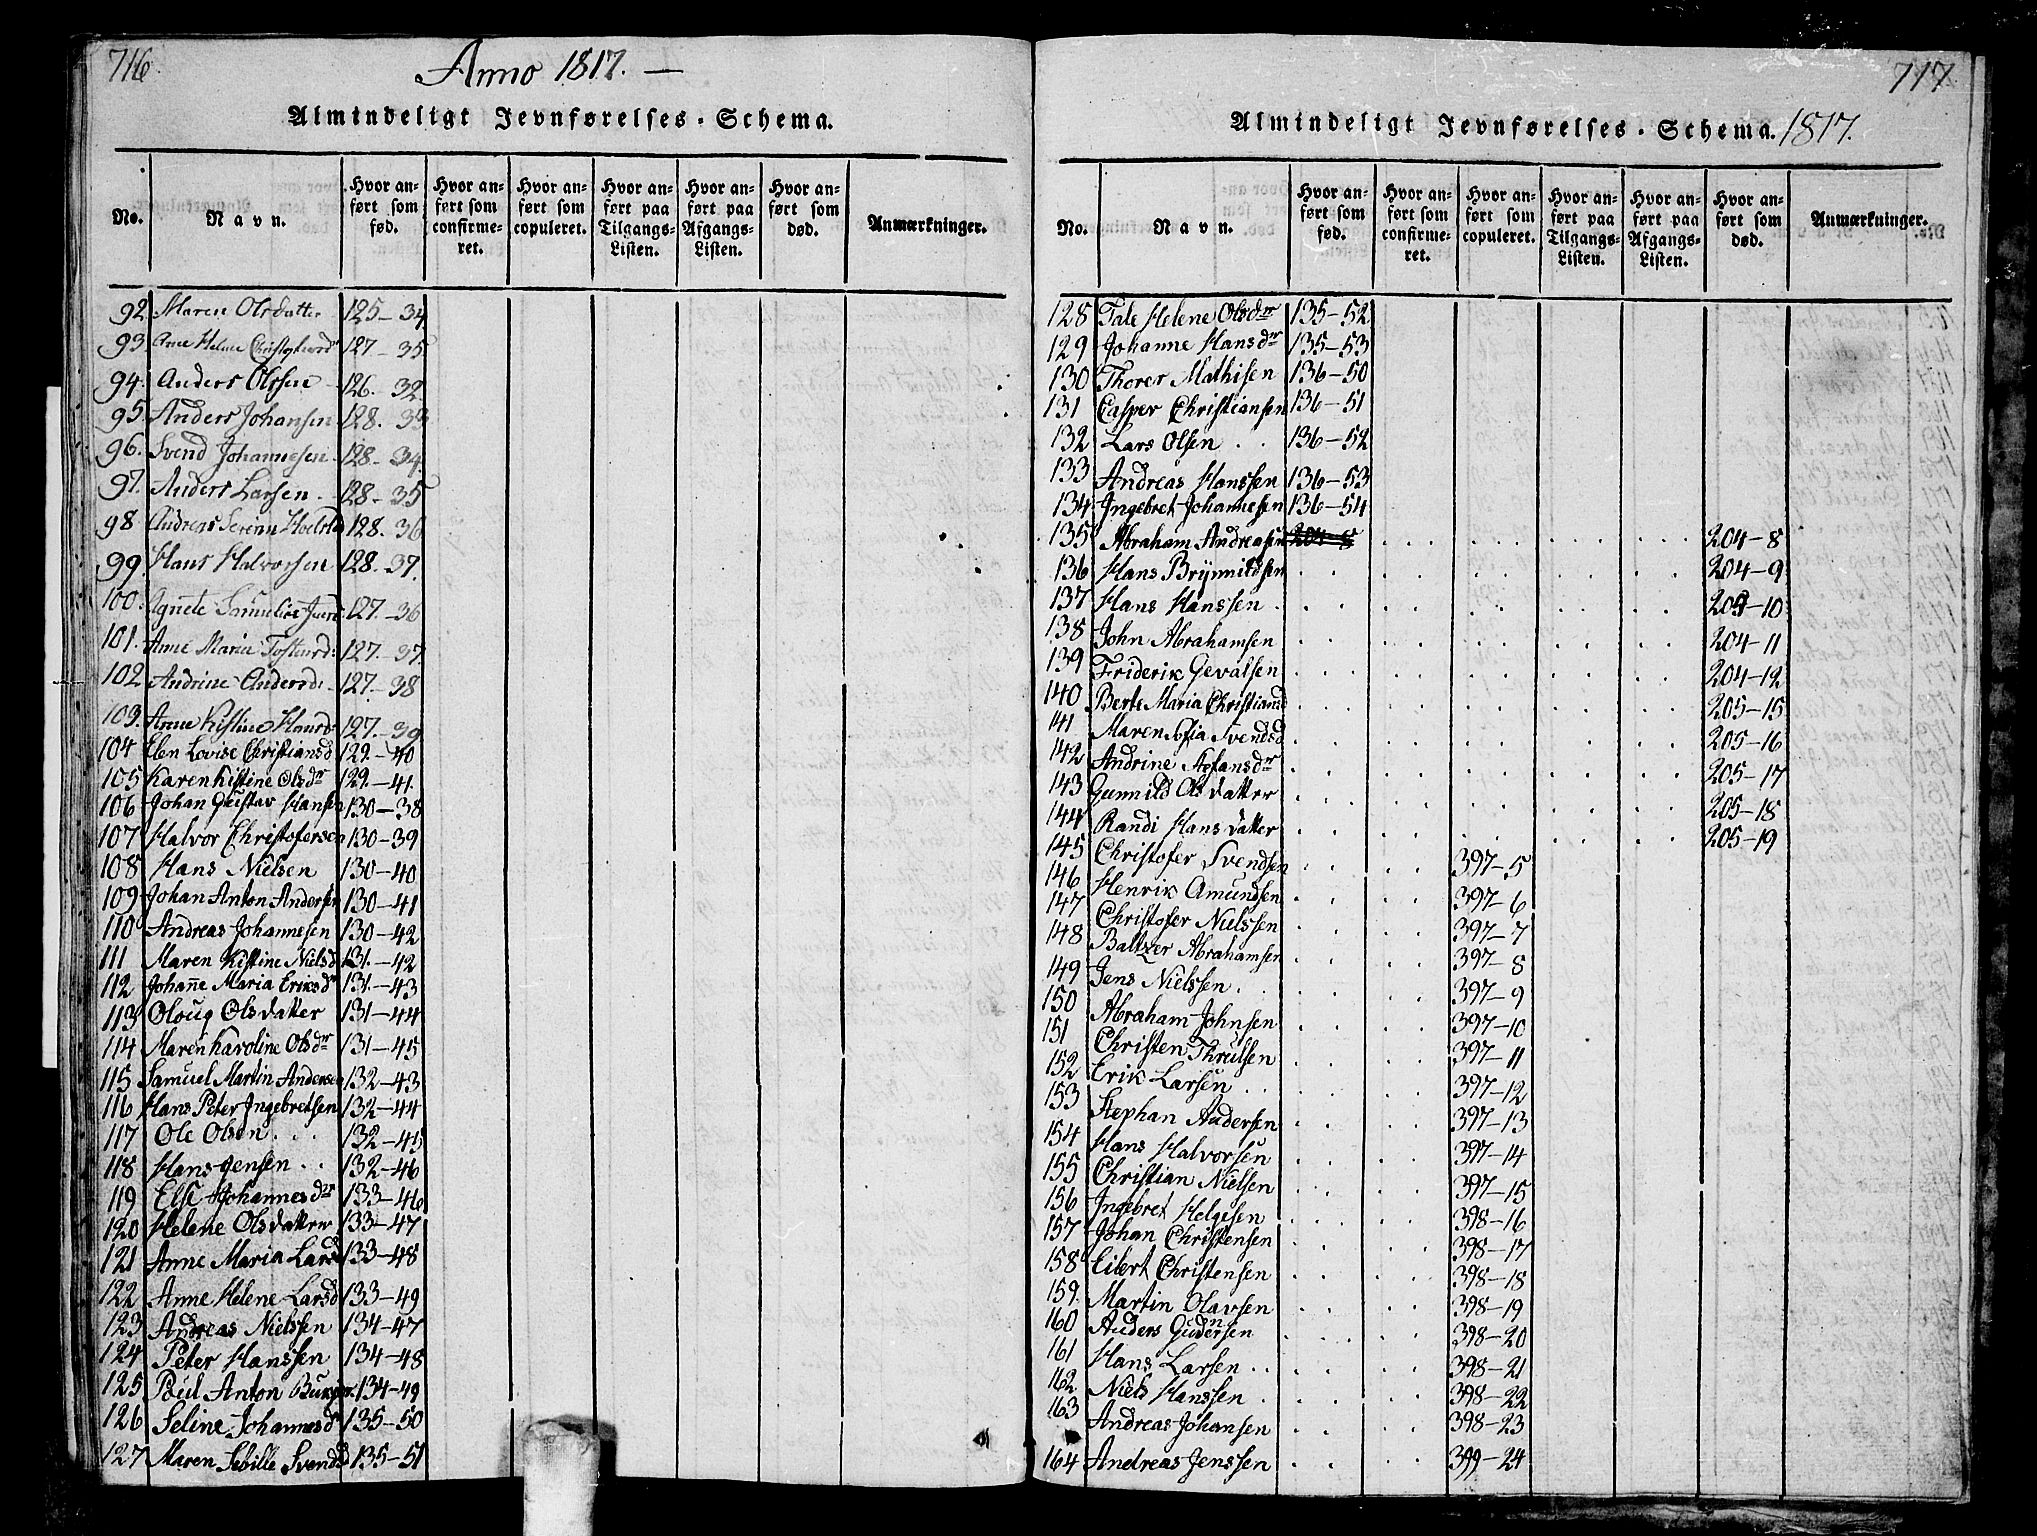 716
Anno 1817. —
Almindeligt Jevnførelses-Schema.
No. Navn. Hvor anført som fød. Hvor anført som confirmeret. Hvor anført som copuleret. Hvor anført paa Tilgangs-Listen. Hvor anført paa Afgangs-Listen. Hvor anført som død. Anmærkninger.
92 Maren Olsdatter 125-34
93 Anne Helene Christophersd 127-35
94. Anders Olssen 126-32.
95. Anders Johansen 128.33
96. Svend Johannesen 128-34.
97. Anders Larsen 128-35
98 Andreas 128.36
99. Hans Halvorsen 128.-37.
100. Agnete 127.-36
101. Anne Maria 127.-37.
102 Andrine Andersd: 127.-38
103. Anne Kistine Hansd: 127.-39
104 Elen Lovise Christiansd 129.-40
105 Karen Kistine Olsdr 129.-41.
106 Johan Gustav Hansen 130-38
107 Halvor Christofersen 130-39
108 Hans Nielsen 130-40
109 Johan Anton Andersen 130-41
110 Andreas Johannesen 130-42
111 Maren Kistine Nielsd 131.-42
112 Johañe Maria Eriksdr 131.-43
113 Oloug Olsdatter 131-44
114 Maren Karoline Olsdr 131-45
115 Samuel Martin Andersen 132-43
116 Hans Peter Ingebretsen 132-44
117 Ole Olsen 132-45
118 Hans Jensen 132-46
119 Else Johannesdr 133-46
120 Helene Olsdatter 133-47
121 Anne Maria Larsd 133-48
122 Anne Helene Larsd 133-49
123 Andreas Nielssen 134-47
124 Peter Hanssen 134-48
125 Poul Anton 134-49
126 Seline Johannesdr 135-50
127 Maren Sibille Svendsd 135-51
717
Almindeligt Jevnførelses-Schema. 1817.
No. Navn. Hvor anført som fød. Hvor anført som confirmeret. Hvor anført som copuleret. Hvor anført paa Tilgangs-Listen. Hvor anført paa Afgangs-Listen. Hvor anført som død. Anmærkninger.
128 Tale Helene Olsdr 135-52
129 Johanne Hansdr 135-53
130 Thorer Mathisen 136-50
131 Casper Christiansen 136-51
132 Lars Olsen 136-52
133 Andreas Hanssen 136-53
134 Ingebret Johannesen 136-54
135 Abraham Andreasen 204-8 204-8
136 Hans Brynnildsen 204-9
137 Hans Hanssen 204-10
138 John Abrahamsen 204-11
139 Friderik Gevalsen 204-12
140 Berte Maria Christiansd 205-15
141 Maren Sofia Svendsd 205-16
142 Andrine Stefansdr 205-17
143 Gunnild Olsdatter 205-18
144 Randi Hansdatter 205-19
145 Christofer Svendsen 397-5
146 Henrik Amundsen 397-6
147 Christofer Nielssen 397-7
148 Baltzer Abrahamsen 397-8
149 Jens Nielssen 397-9
150 Abraham Johnsen 397-10
151 Christen Thrulsen 397-11
152 Erik Larsen 397-12
153 Stephan Andersen 397-13
154 Hans Halvorsen 397-14
155 Christian Nielsen 397-15
156 Ingebret Helgesen 398-16
157 Johan Christensen 398-17
158 Eilert Christensen 398-18
159. Martin Olavsen 398-19
160 Anders Gudersen 398-20
161 Hans Larsen 398-21
162 Niels Hanssen 398-22
163 Andreas Johansen 398-23
164 Andreas Jenssen 399-24